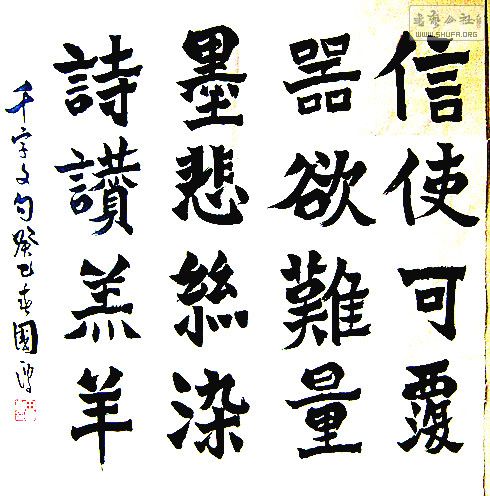 信使可覆
器欲難量
墨悲絲染
詩讚羔羊
千字文句癸巳春國
WWW.SHUFA.ORG